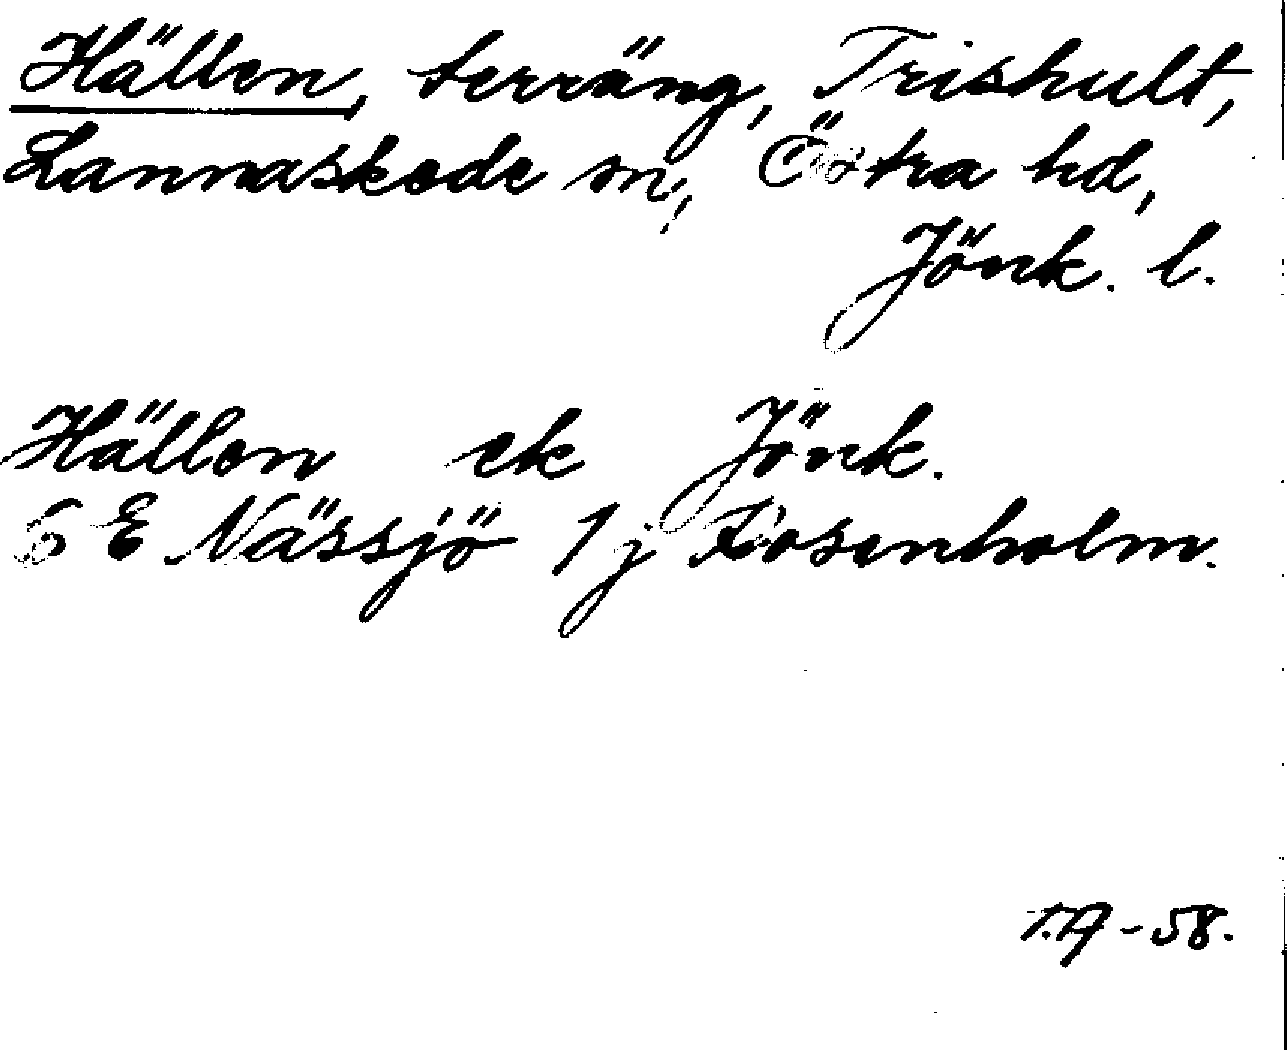 Hällen, terräng, Trishult,
Lannaskede sn, Östra hd,
Jönk. l.
Hällen ek Jönk.
6 E Nässjö 1 j Rosenholm.
T.A -58.